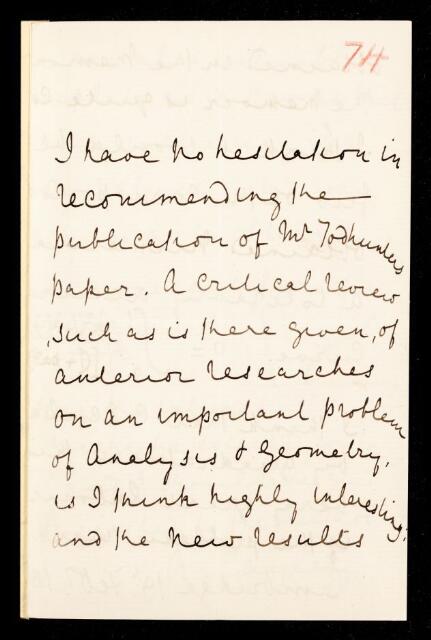 74
I have no hesitation in
recommending the
publication of Mr Todhunters
paper. A critical review
such as is there given, of
anterior researches
on an important problem
of Analysis & Geometry,
is I think highly interesting:
and the new results